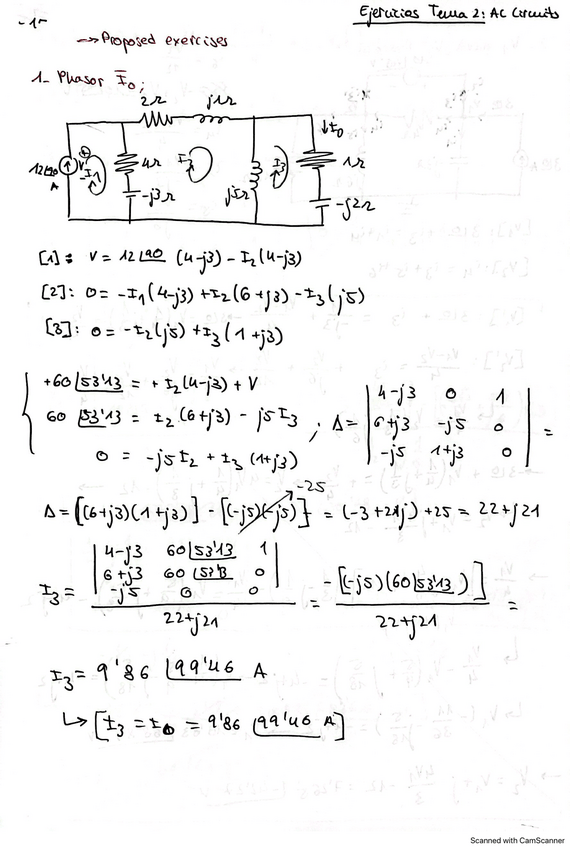 Ejercicios Tema 2: AC Circuits
→ Proposed exercises
1- Phasor I̅₀;
2Ω j1Ω
↓I₀
12∠90 A V -I₁ 4Ω I₂ I₃ 1Ω
-j3Ω j5Ω -j2Ω
[1]: V = 12∠90 (4-j3) - I₂(4-j3)
[2]: 0 = -I₁(4-j3) + I₂(6+j3) - I₃(j5)
[3]: 0 = -I₂(j5) + I₃(1+j3)
+60∠53'13 = + I₂(4-j3) + V
60∠53'13 = I₂(6+j3) - j5I₃ ; Δ = | 4-j3 0 1 | 6+j3 -j5 0 | -j5 1+j3 0 | =
0 = -j5I₂ + I₃(1+j3)
Δ = [(6+j3)(1+j3)] - [(-j5)(-j5)] -25 = (-3+21j) + 25 = 22+j21
| 4-j3 60∠53'13 1 |
| 6+j3 60∠53'13 0 |
| -j5 0 0 |
I₃ = / 22+j21 = -[(-j5)(60∠53'13)] / 22+j21 =
I₃ = 9'86 ∠99'46 A
↳ [I₃ = I₀ = 9'86 ∠99'46 A]
Scanned with CamScanner